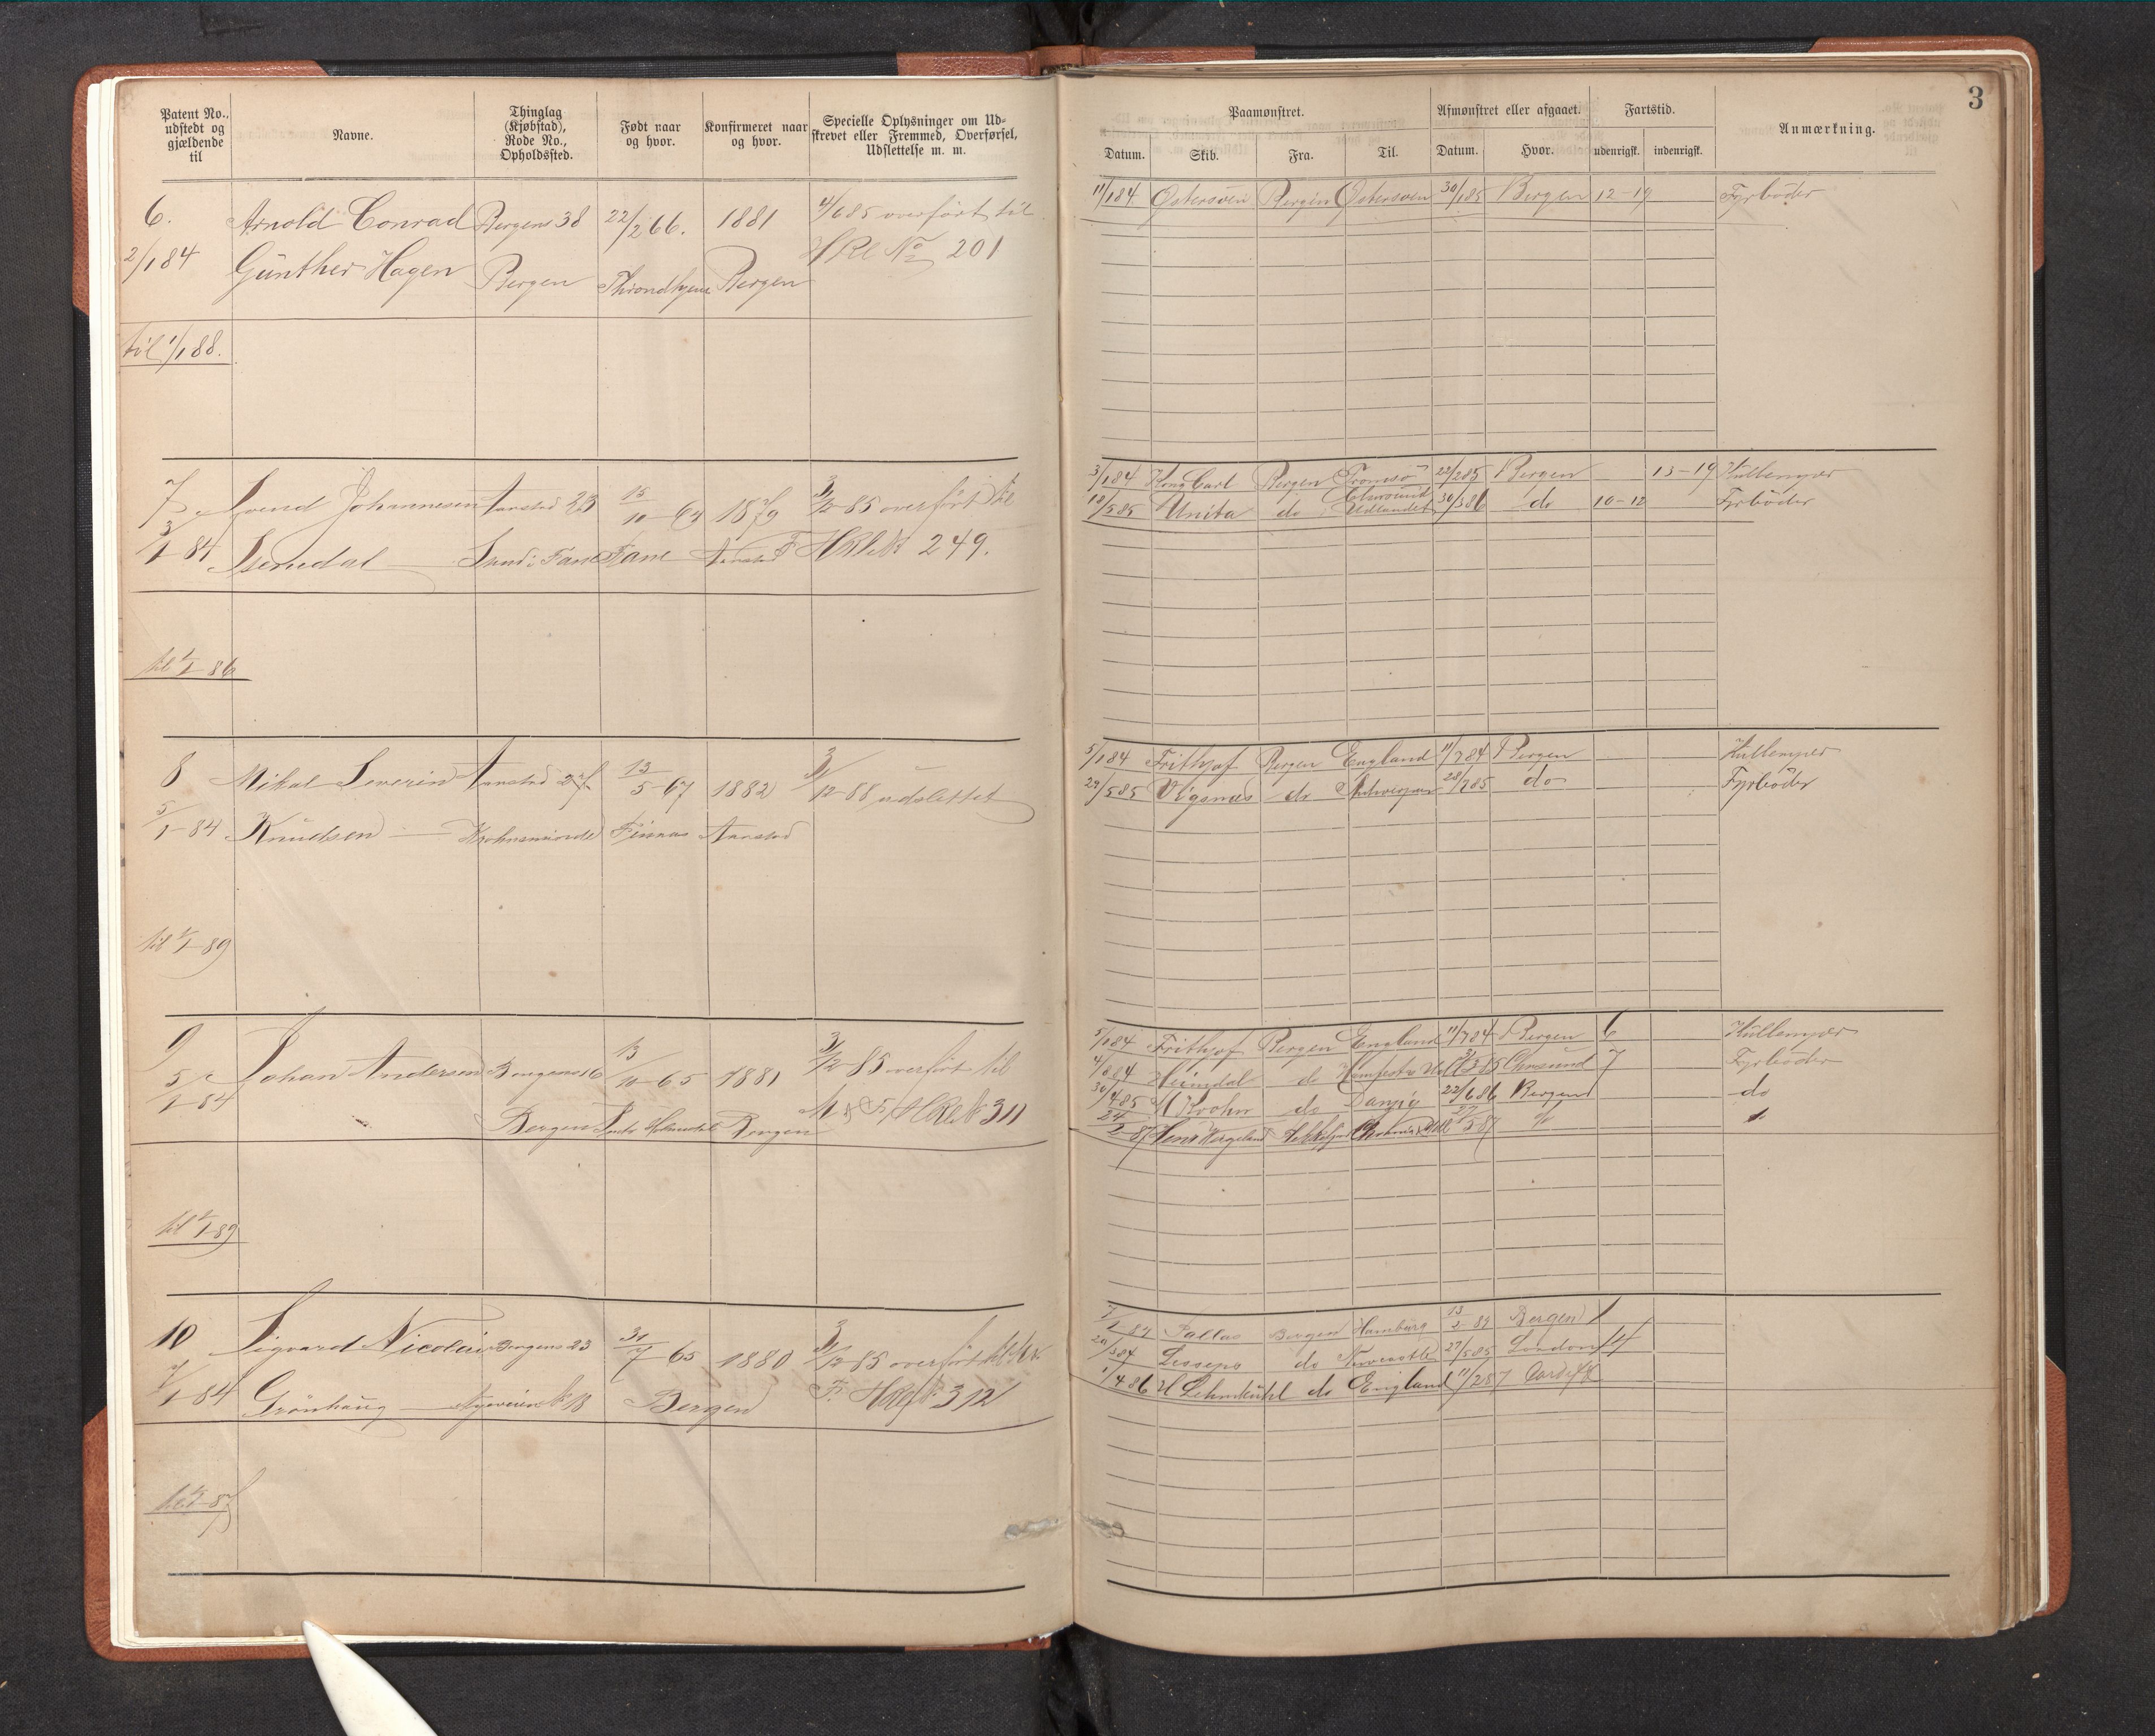 3
Patent No., udstedt og gjældende til
Navne.
Thinglag (Kjøbstad), Rode No., Opholdssted.
Født naar og hvor.
Konfirmeret naar og hvor.
Specielle Oplysninger om Udskrevet eller Fremmed, Overførsel, Udslettelse m. m.
Paamønstret.
Afmønstret eller afgaaet.
Fartstid.
Anmærkning.
Datum. Skib. Fra. Til. Datum. Hvor. udenrigsk. indenrigsk.
6. Arnold Conrad Bergens 38 22/2 66. 1881 4/6 85 overført til
2/1 84 Günther Hagen Bergen Throndhjem Bergen HRl No 201
til 1/1 88.
11/1 84 Østersøen Bergen Østersøen 30/1 85 Bergen 12-19 Fyrbøder
7 Svend Johannesen Aarstad 23 15/10-64 1879 3/12-85 overført til
3/1-84 Fane HRl No 249.
til 1/1-86
3/1 84 Kong Carl Bergen Tromsø 22/2 85 Bergen 13-19 Kullemper
18/5 85 Unita do Udlandet 30/3 86 do 10-12 Fyrbøder
8 Mikal Severin Aarstad 13/5-67 1882 3/12-88 udslettet
5/1-84 Knudsen Finnaas Aarstad
til 1/1-89
5/1 84 Frithjof Bergen England 11/7 84 Bergen Kullemper
22/5 85 Vigsnæs do Antwerpen 28/7 85 do Fyrbøder
9 Johan Andersen Bergens 16 13/10-65 1881 3/12-85 overført til
5/1-84 Bergen Bergen HRl No 311
til 1/1-89
5/1 84 Frithjof Bergen England 11/7 84 Bergen 6 Kullemper
Heimdal do 7 Fyrbøder
30/4 85 M Krohn do Danzig 22/6 86 Bergen do
Henr Wergeland
10 Sigvard Nicolai Bergens 23 31/7-65 1880 3/12-85 overført til
7/1-84 Grönhaug Nyeveien No 18 Bergen HRl No 312
7/1-84 Pallas Bergen Hamburg Bergen
Lesseps do Newcastle 27/5 85 London 14
1/4 86 H Lehmkuhl do England 11/2 87 Cardiff